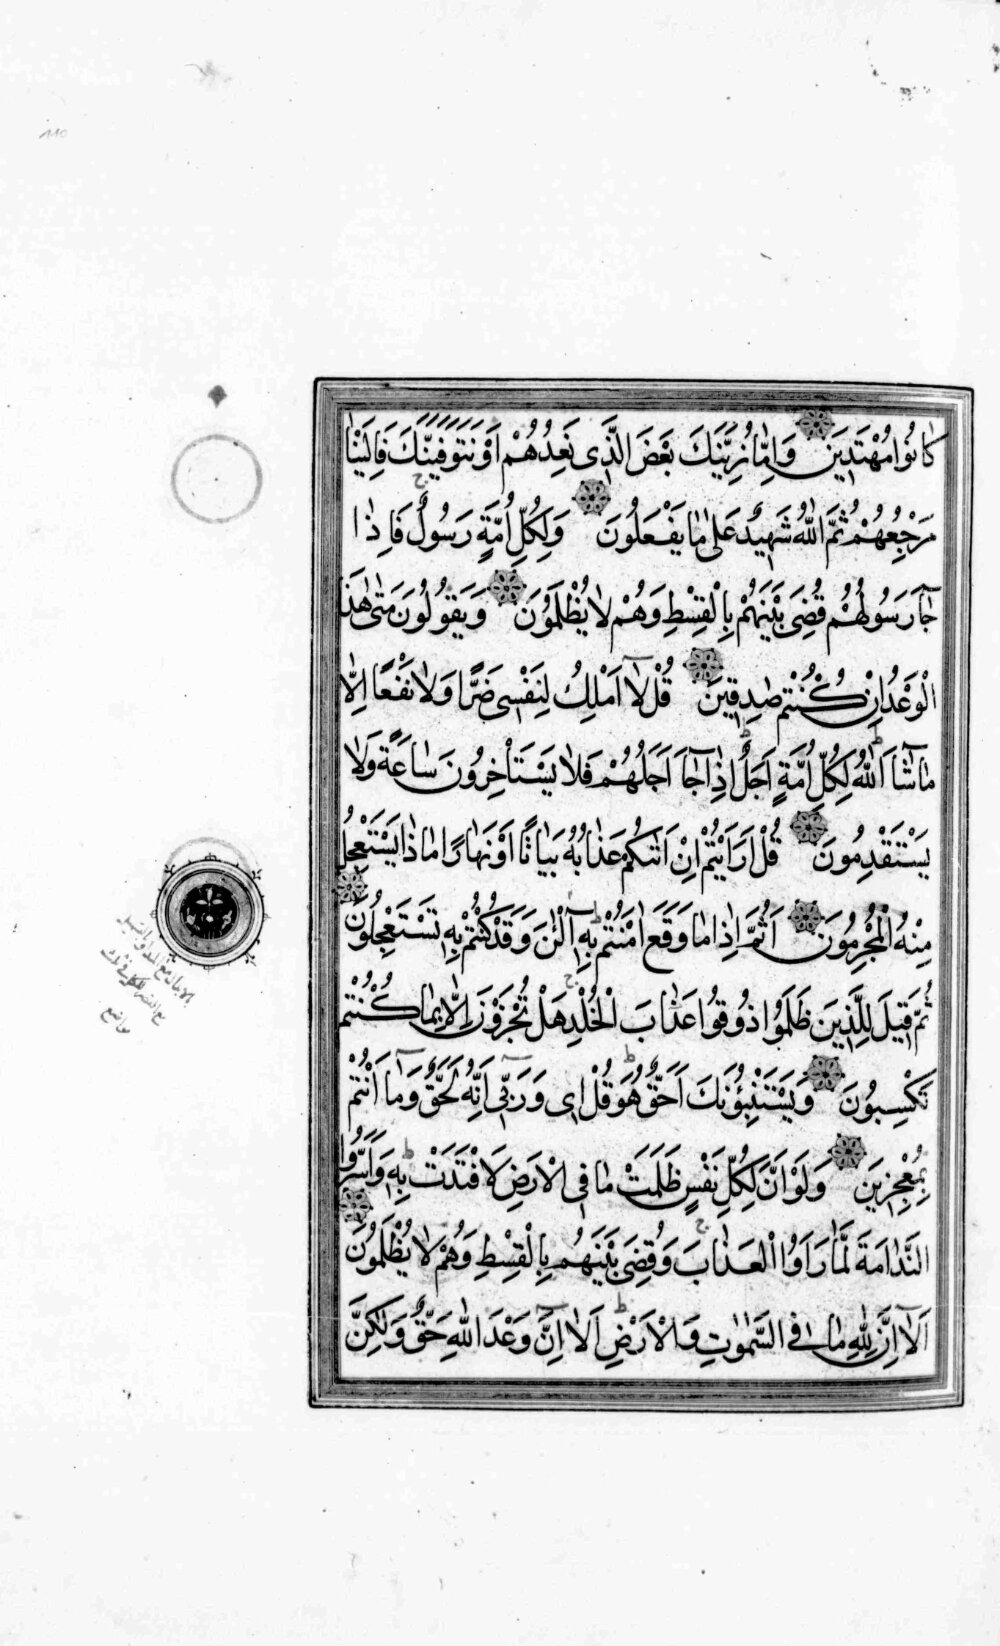 كَانُوا مُهْتَدِينَ وَاِمَّا نُرِيَنَّكَ بَعْضَ الَّذِى نَعِدُهُمْ اَوْ نَتَوَفَّيَنَّكَ فَاِلَيْنَا
مَرْجِعُهُمْ ثُمَّ اللّٰهُ شَهِيدٌ عَلٰى مَا يَفْعَلُونَ وَلِكُلِّ اُمَّةٍ رَسُولٌ فَاِذَا
جَآءَ رَسُولُهُمْ قُضِىَ بَيْنَهُمْ بِالْقِسْطِ وَهُمْ لَا يُظْلَمُونَ وَيَقُولُونَ مَتٰى هٰذَا
الْوَعْدُ اِنْ كُنْتُمْ صٰدِقِينَ قُلْ لَآ اَمْلِكُ لِنَفْسِى ضَرًّا وَلَا نَفْعًا اِلَّا
مَا شَآءَ اللّٰهُ لِكُلِّ اُمَّةٍ اَجَلٌ اِذَا جَآءَ اَجَلُهُمْ فَلَا يَسْتَأْخِرُونَ سَاعَةً وَلَا
يَسْتَقْدِمُونَ قُلْ اَرَاَيْتُمْ اِنْ اَتٰىكُمْ عَذَابُهُ بَيَاتًا اَوْ نَهَارًا مَاذَا يَسْتَعْجِلُ
مِنْهُ الْمُجْرِمُونَ اَثُمَّ اِذَا مَا وَقَعَ اٰمَنْتُمْ بِهِ آلْئٰنَ وَقَدْ كُنْتُمْ بِهِ تَسْتَعْجِلُونَ
ثُمَّ قِيلَ لِلَّذِينَ ظَلَمُوا ذُوقُوا عَذَابَ الْخُلْدِ هَلْ تُجْزَوْنَ اِلَّا بِمَا كُنْتُمْ
تَكْسِبُونَ وَيَسْتَنْبِئُونَكَ اَحَقٌّ هُوَ قُلْ اِى وَرَبِّى اِنَّهُ لَحَقٌّ وَمَآ اَنْتُمْ
بِمُعْجِزِينَ وَلَوْ اَنَّ لِكُلِّ نَفْسٍ ظَلَمَتْ مَا فِى الْاَرْضِ لَافْتَدَتْ بِهِ وَاَسَرُّوا
النَّدَامَةَ لَمَّا رَاَوُا الْعَذَابَ وَقُضِىَ بَيْنَهُمْ بِالْقِسْطِ وَهُمْ لَا يُظْلَمُونَ
اَلَآ اِنَّ لِلّٰهِ مَا فِى السَّمٰوٰتِ وَالْاَرْضِ اَلَآ اِنَّ وَعْدَ اللّٰهِ حَقٌّ وَلٰكِنَّ
110